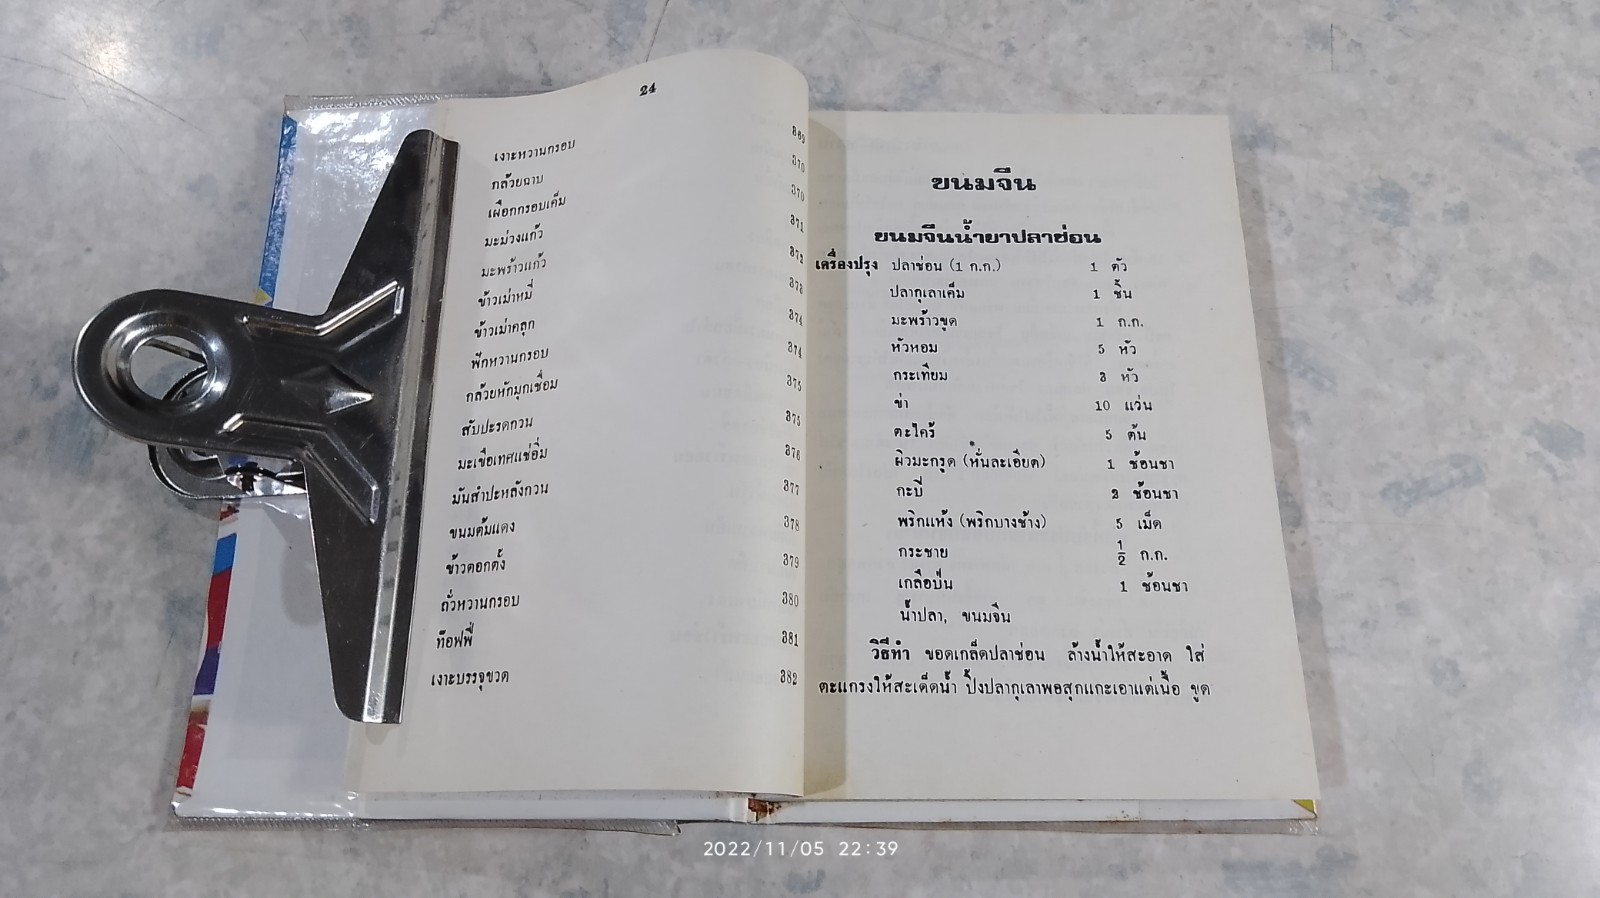 24
เงาะหวานกรอบ 369
กล้วยฉาบ 370
เผือกกรอบเค็ม 370
มะม่วงแก้ว 371
มะพร้าวแก้ว 372
ข้าวเม่าหมี่ 373
ข้าวเม่าคลุก 374
ฟักหวานกรอบ 374
กล้วยหักมุกเชื่อม 375
สับปะรดกวน 375
มะเขือเทศแช่อิ่ม 376
มันสำปะหลังกวน 377
ขนมต้มแดง 378
ข้าวตอกตั้ง 379
ถั่วหวานกรอบ 380
ท๊อฟฟี่ 381
เงาะบรรจุขวด 382
ขนมจีน
ขนมจีนน้ำยาปลาช่อน
เครื่องปรุง ปลาช่อน (1 ก.ก.) 1 ตัว
ปลากุเลาเค็ม 1 ชิ้น
มะพร้าวขูด 1 ก.ก.
หัวหอม 5 หัว
กระเทียม 3 หัว
ข่า 10 แว่น
ตะไคร้ 5 ต้น
ผิวมะกรูด (หั่นละเอียด) 1 ช้อนชา
กะปิ 2 ช้อนชา
พริกแห้ง (พริกบางช้าง) 5 เม็ด
กระชาย ½ ก.ก.
เกลือป่น 1 ช้อนชา
น้ำปลา, ขนมจีน
วิธีทำ ขอดเกล็ดปลาช่อน ล้างน้ำให้สะอาด ใส่
ตะแกรงให้สะเด็ดน้ำ ปิ้งปลากุเลาพอสุกแกะเอาแต่เนื้อ ขูด
2022/11/05 22:39